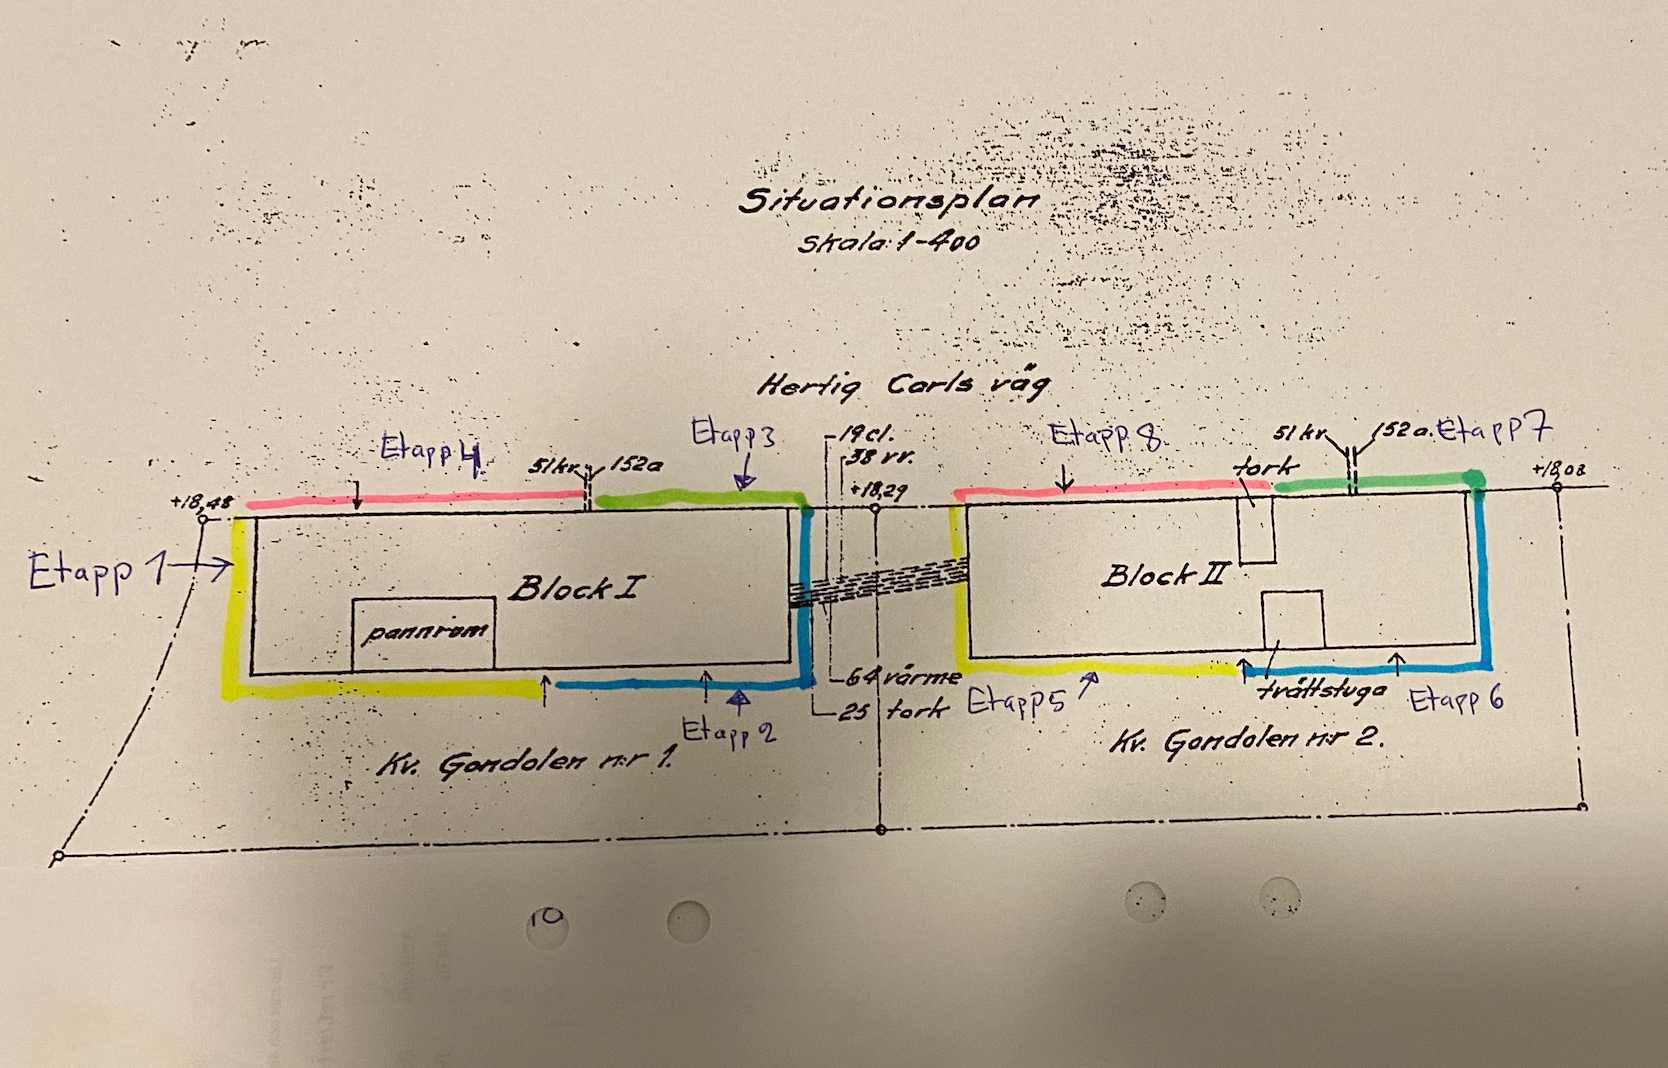 Situationsplan
Skala 1-400
Hertig Carls väg
Etapp 4
51kr.
152a
Etapp 3
19cl.
38 vv.
+18,29
Etapp 8
tork
51kr
152a.
Etapp 7
+18,08
+18,48
Etapp 1
Block I
pannrum
Block II
64 värme
25 tork
Etapp 2
Etapp 5
tvättstuga
Etapp 6
Kv. Gondolen nr 1.
Kv. Gondolen nr 2.
10